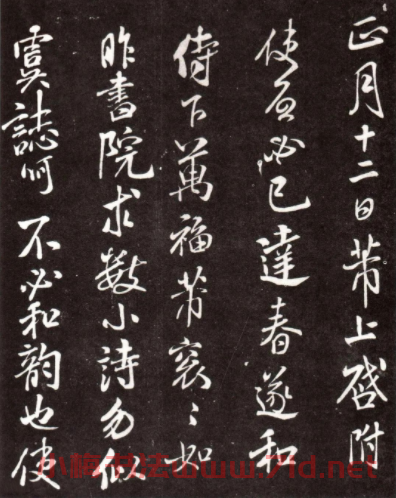 正月十二日芾上啓附
使必已達春遂和
侍下萬福芾衮〻如
昨書院求數小詩勿
虞誌何不必和韵也使
书法www.71d.net